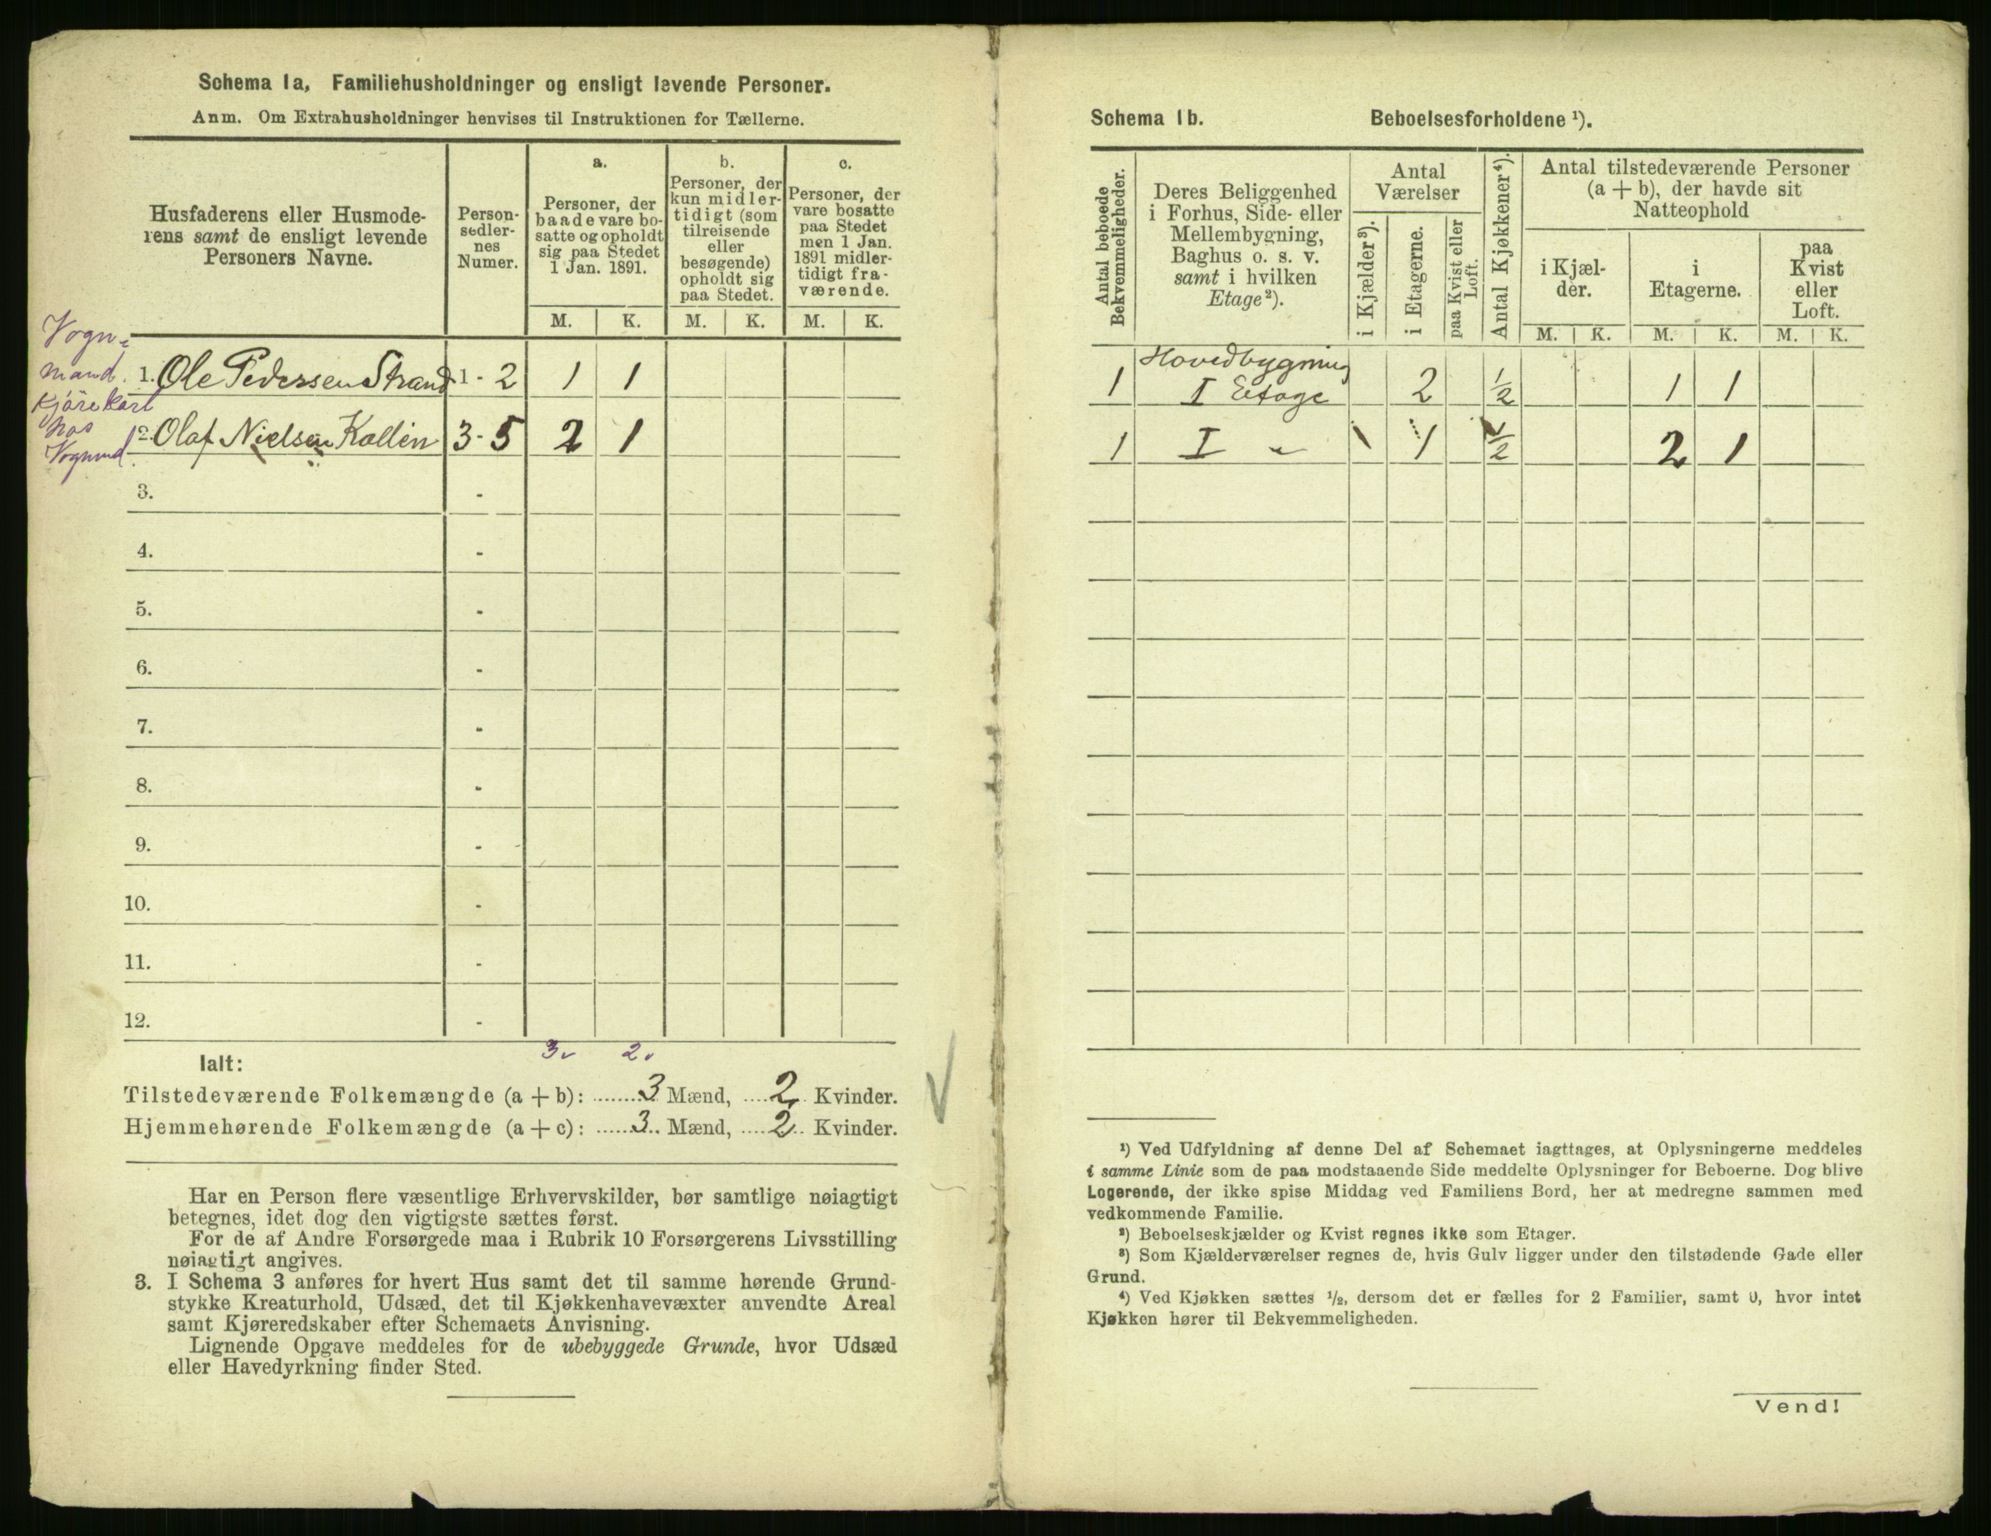 Schema 1a, Familiehusholdninger og ensligt levende Personer.
Anm. Om Extrahusholdninger henvises til Instruktionen for Tællerne.
Husfaderens eller Husmode-
rens samt de ensligt levende
Personers Navne.
Person-
sedler-
nes
Numer.
a.
Personer, der
baade vare bo-
satte og opholdt
sig paa Stedet
1 Jan. 1891.
b.
Personer, der
kun midler-
tidigt (som
tilreisende
eller
besøgende)
opholdt sig
paa Stedet.
c.
Personer, der
vare bosatte
paa Stedet
men 1 Jan.
1891 midler-
tidigt fra-
værende.
M. K. M. K. M. K.
Vogn-
mand.
1. Ole Pedersen Strand 1 - 2 1 1
Kjørekarl
hos
Vognmd.
2. Olaf Nielsen Kallén 3 - 5 2 1
3. -
4. -
5. -
6. -
7. -
8. -
9. -
10. -
11. -
12. -
3 2
Ialt:
Tilstedeværende Folkemængde (a + b): 3 Mænd, 2 Kvinder.
Hjemmehørende Folkemængde (a + c): 3 Mænd, 2 Kvinder.
Har en Person flere væsentlige Erhvervskilder, bør samtlige nøiagtigt
betegnes, idet dog den vigtigste sættes først.
For de af Andre Forsørgede maa i Rubrik 10 Forsørgerens Livsstilling
nøiagtigt angives.
3. I Schema 3 anføres for hvert Hus samt det til samme hørende Grund-
stykke Kreaturhold, Udsæd, det til Kjøkkenhavevæxter anvendte Areal
samt Kjøreredskaber efter Schemaets Anvisning.
Lignende Opgave meddeles for de ubebyggede Grunde, hvor Udsæd
eller Havedyrkning finder Sted.
Schema 1b. Beboelsesforholdene ¹).
Antal beboede
Bekvemmeligheder.
Deres Beliggenhed
i Forhus, Side- eller
Mellembygning,
Baghus o. s. v.
samt i hvilken
Etage²).
Antal
Værelser
i Kjælder³).
i Etagerne.
paa Kvist eller
Loft.
Antal Kjøkkener⁴).
Antal tilstedeværende Personer
(a + b), der havde sit
Natteophold
i Kjæl-
der.
i
Etagerne.
paa
Kvist
eller
Loft.
M. K. M. K. M. K.
Hovedbygning
1 I Etage 2 1/2 1 1
1 I - 1 1/2 2 1
¹) Ved Udfyldning af denne Del af Schemaet iagttages, at Oplysningerne meddeles
i samme Linie som de paa modstaaende Side meddelte Oplysninger for Beboerne. Dog blive
Logerende, der ikke spise Middag ved Familiens Bord, her at medregne sammen med
vedkommende Familie.
²) Beboelseskjælder og Kvist regnes ikke som Etager.
³) Som Kjælderværelser regnes de, hvis Gulv ligger under den tilstødende Gade eller
Grund.
⁴) Ved Kjøkken sættes ½, dersom det er fælles for 2 Familier, samt 0, hvor intet
Kjøkken hører til Bekvemmeligheden.
Vend!